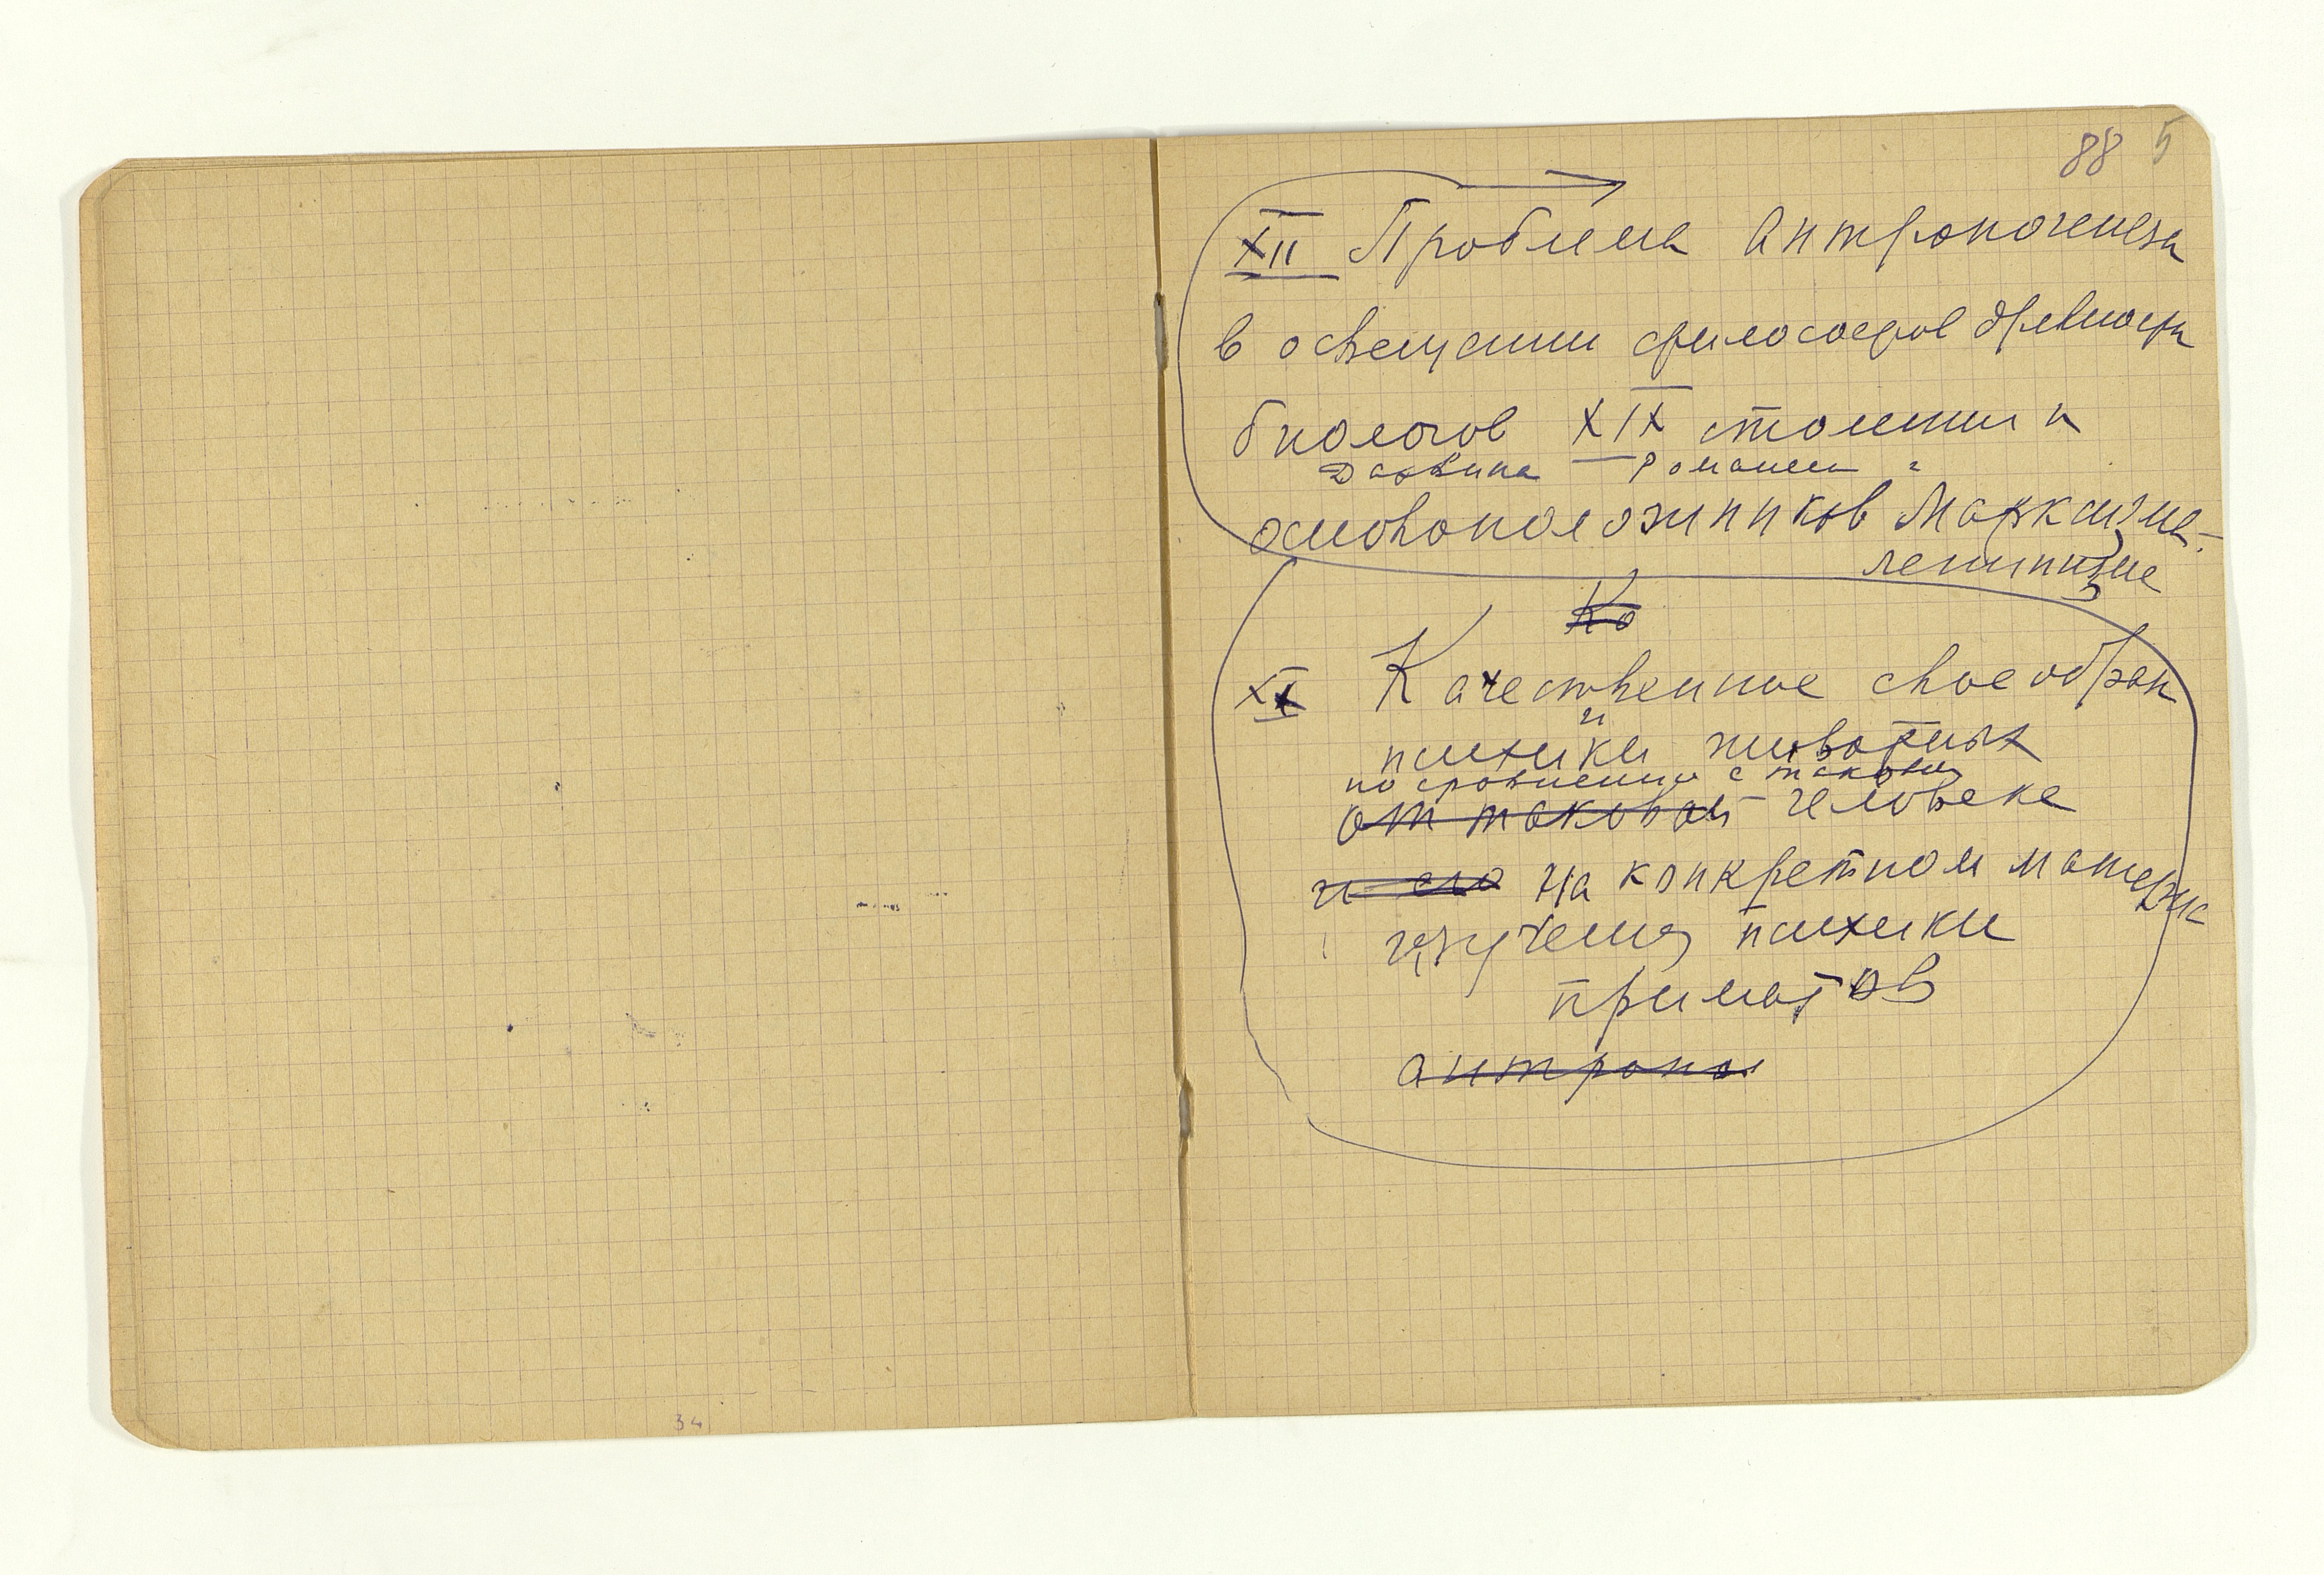 88 5
XII Проблема Антропогенеза
в освещении философов древности
биологов XIX столетия и
Дарвина – Романеса
основоположников Марксизма-
ленинизма
Ко
XI Качественное своеобрази
психики животных
по сравнению с таковой
от таковой человека
и его на конкретном материале
изучения психики
приматов
антропои
34